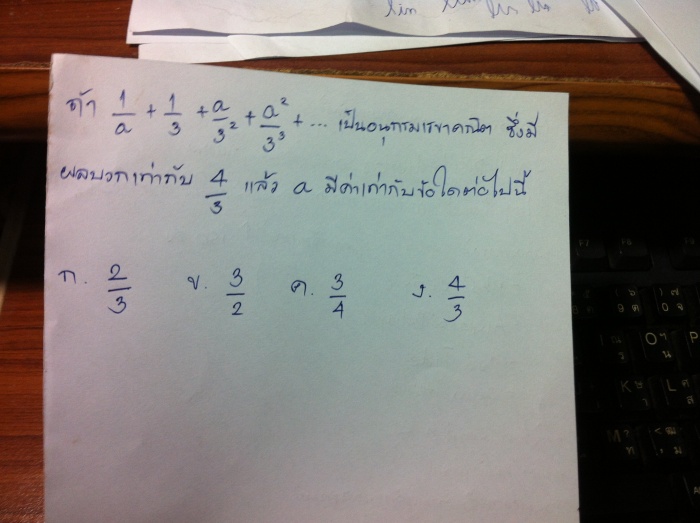 ถ้า 1/a + 1/3 + a/3² + a²/3³ + ... เป็นอนุกรมเรขาคณิต ซึ่งมี
ผลบวกเท่ากับ 4/3 แล้ว a มีค่าเท่ากับข้อใดต่อไปนี้
ก. 2/3 ข. 3/2 ค. 3/4 ง. 4/3